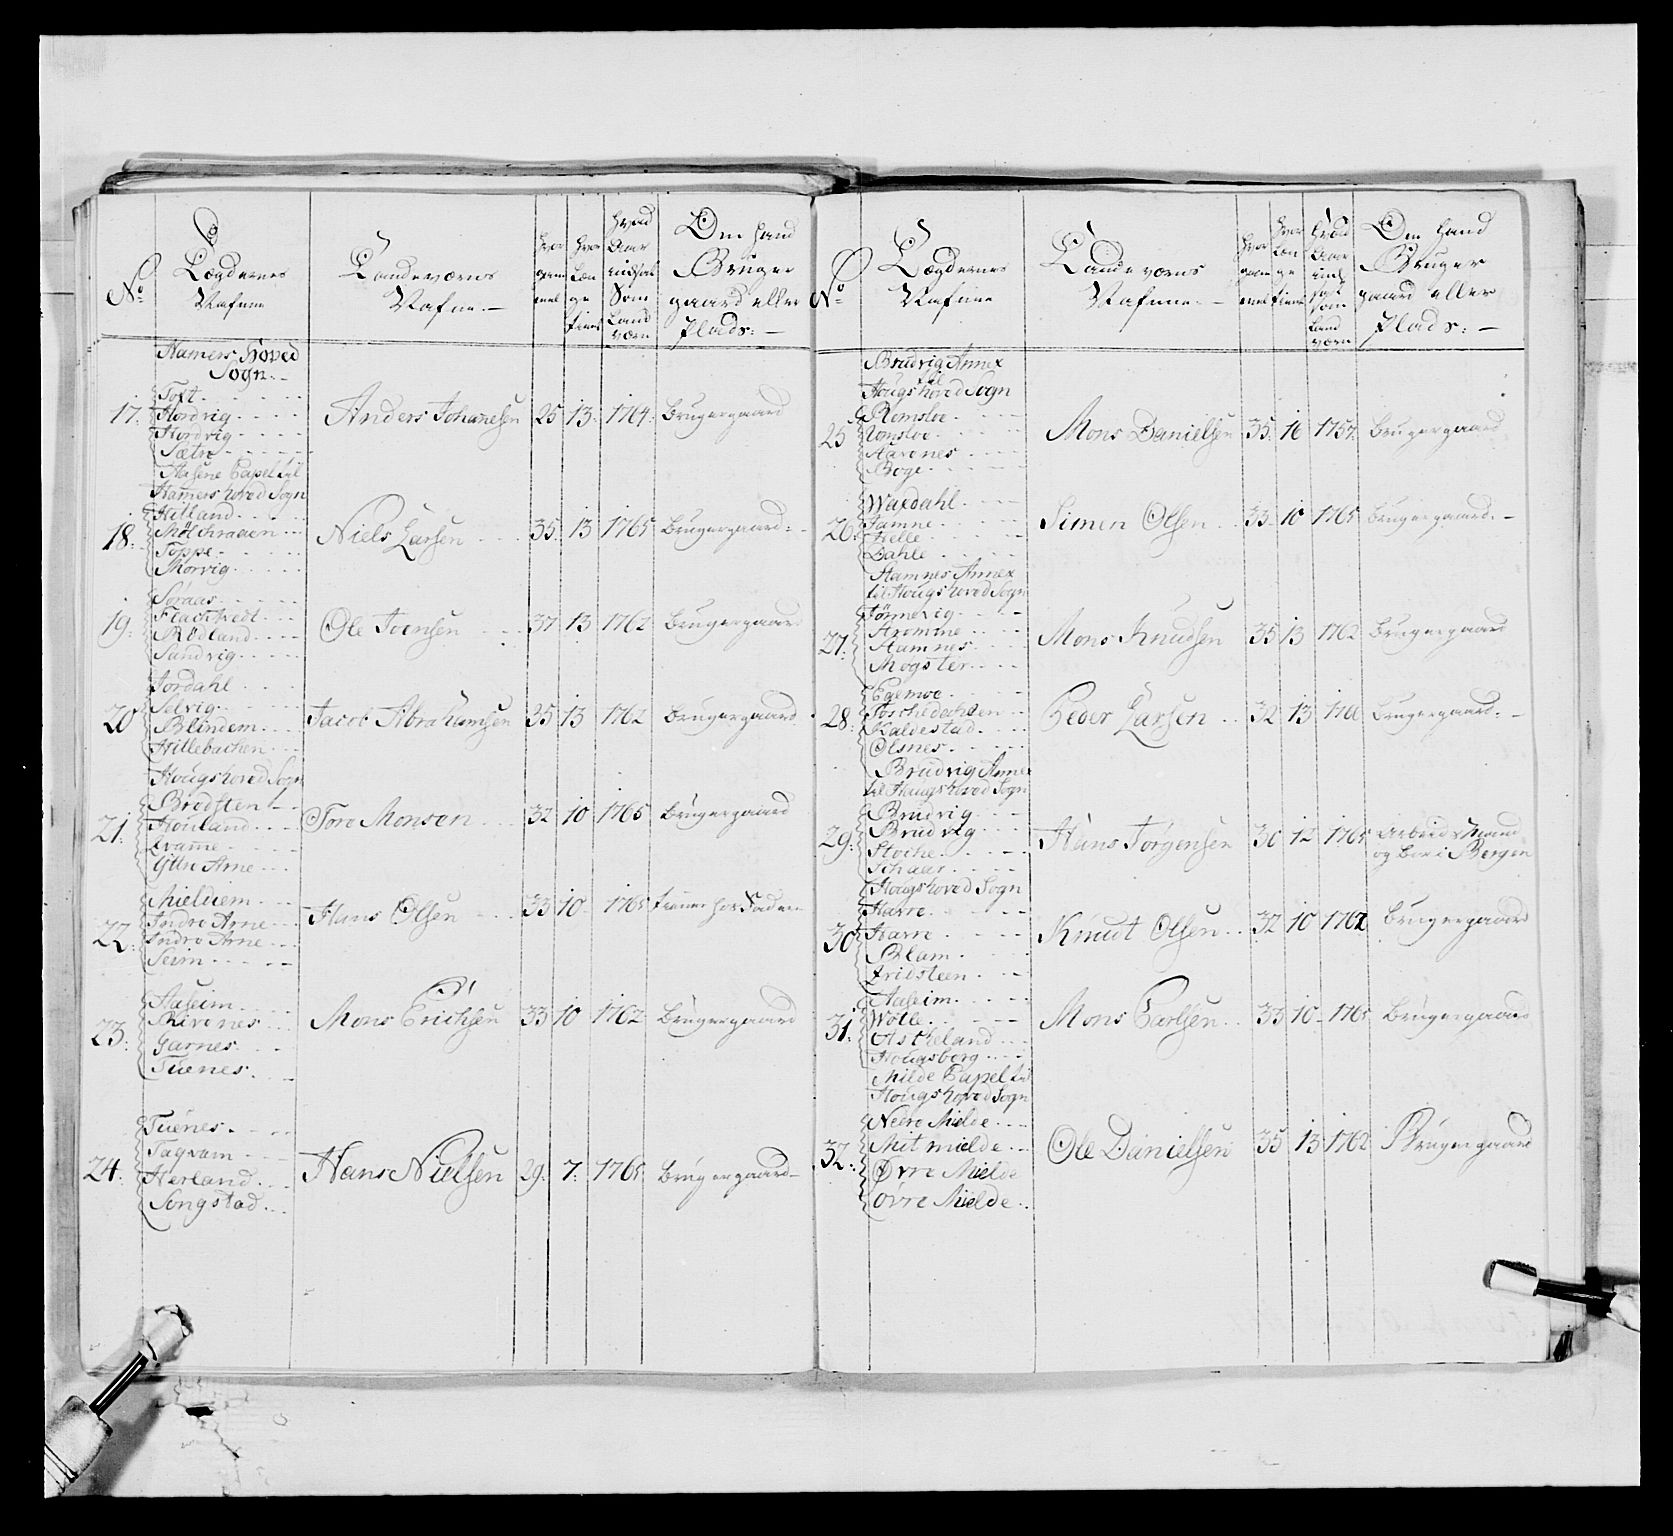 No
Lægdernes
Nafne
Landeværns
Nafne. —
Hvor
gam
mel
Hvor
Læn
ge
tient
Hvad
Aar
indsat
Som
Land
værn
Om hand
Bruger
gaard eller
Plads: —
Hamers Hoved
Sogn. -
17.
Toft
Hordvig
Hordvig
Sætre
Anders Johannesen 25 13. 1764. Brugergaard
Aasene Capel til
Hamers hoved Sogn
18.
Hitland
Mölchraaen
Toppe
Morvig
Niels Larsen 35. 13 1765 Brugergaard: -
19.
Søraas
Flachtvedt
Rödland
Sandvig
Ole Joensen 37 13 1762 Brugergaard
20
Jordahl
Selvig
Blindem
Hillebachen
Jacob Abrahamsen 35 13 1762 Brugergaard
Hougs hoved Sogn
21.
Bredsten
Houland
Framme
Ytre Arne
Tore Monsen 32 10 1765 Brugergaard
22.
Mieldiem
Indre Arne
Indre Arne
Seim
Hans Olsen 33 10 1765 tiener hos Faderen
23.
Aaseim
Rivenes
Garnes
Tuenes
Mons Erichsen 33 10 1762 Brugergaard
24.
Tuenes
Tagvam
Herland
Songstad
Hans Nielsen 29. 7. 1765 Brugergaard -
No
Lægdernes
Nafne
Landeværns
Nafne. -
Hvor
gam
mel
Hvor
Læn
ge
tient
Hvad
Aar
ind
sat
som
Land
værn
Om hand
Bruger
gaard eller
Plads: —
Brudvig Annex
til
Hougs hoved Sogn
25
Romsloe
Romsloe
Aavenes
Boge
Mons Danielsen 35. 16 1757. Brugergaard
26.
Waxdahl
Jamne
Helle
Dahle
Simen Olsen 33 10 1765 Brugergaard. -
Stamnes Annex
til Hougs hoved Sogn
27.
Fönnevig
Stromme
Stamnes
Mogster
Mons Knudsen 35 13 1762 Brugergaard
28.
Egemoe
Toschedahlen
Kaldestad
Olsnes
Peder Larsen 32 13 Brugergaard: -
Brudvig Annex
til Hougs hoved Sogn
29.
Brudvig
Brudvig
Stoche
Schaar
Hans Jørgensen 36 12 1765 Arbeids Mand
og Bor i Bergen
Hougs hoved Sogn
30
Harre
Harre
Blam
Fridsteen
Knut Olsen 32 10 1762 Brugergaard
31.
Aaseim
Wolle
Ascheland
Hougsberg
Mons Carlsen 33 10 1765 Brugergaard
Milde Capel til
Hougs hoved Sogn
32.
Nedre Mielde
Mit mielde
Øvre Mielde
Øvre Mielde
Ole Danielsen 35 13 1762 Brugergaard